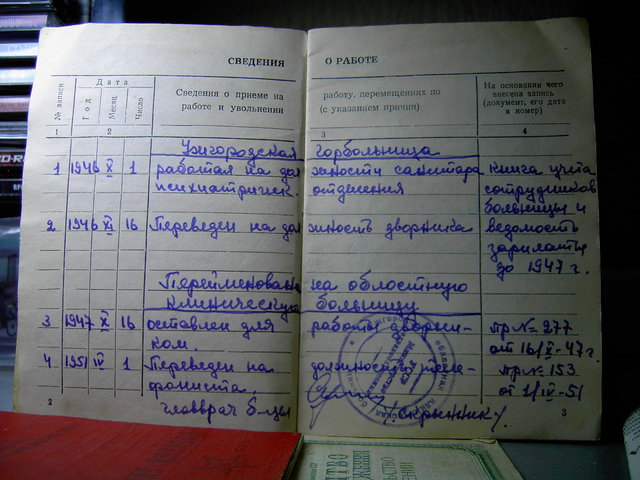 СВЕДЕНИЯ О РАБОТЕ
№ записи
Дата
Год
Месяц
Число
Сведения о приеме на работу, перемещениях по
работе и увольнении (с указанием причин)
На основании чего
внесена запись
(документ, его дата
и номер)
1 2 3 4
Ужгородская горбольница
1 1946 X 1 работал на должности санитара Книга учёта
психиатрическ. отделения сотрудников
больницы и
2 1946 XI 16 Переведен на должность дворника ведомость
зарплаты
до 1947 г.
Переименована на областную
клиническую больницу
3 1947 X 16 оставлен для работы дворни- пр № 277
ком. от 16/X-47 г.
4 1951 IV 1 Переведен на должность теле- пр № 153
фониста. от 1/IV-51
главврач б-цы /Скрынник/.
2 3